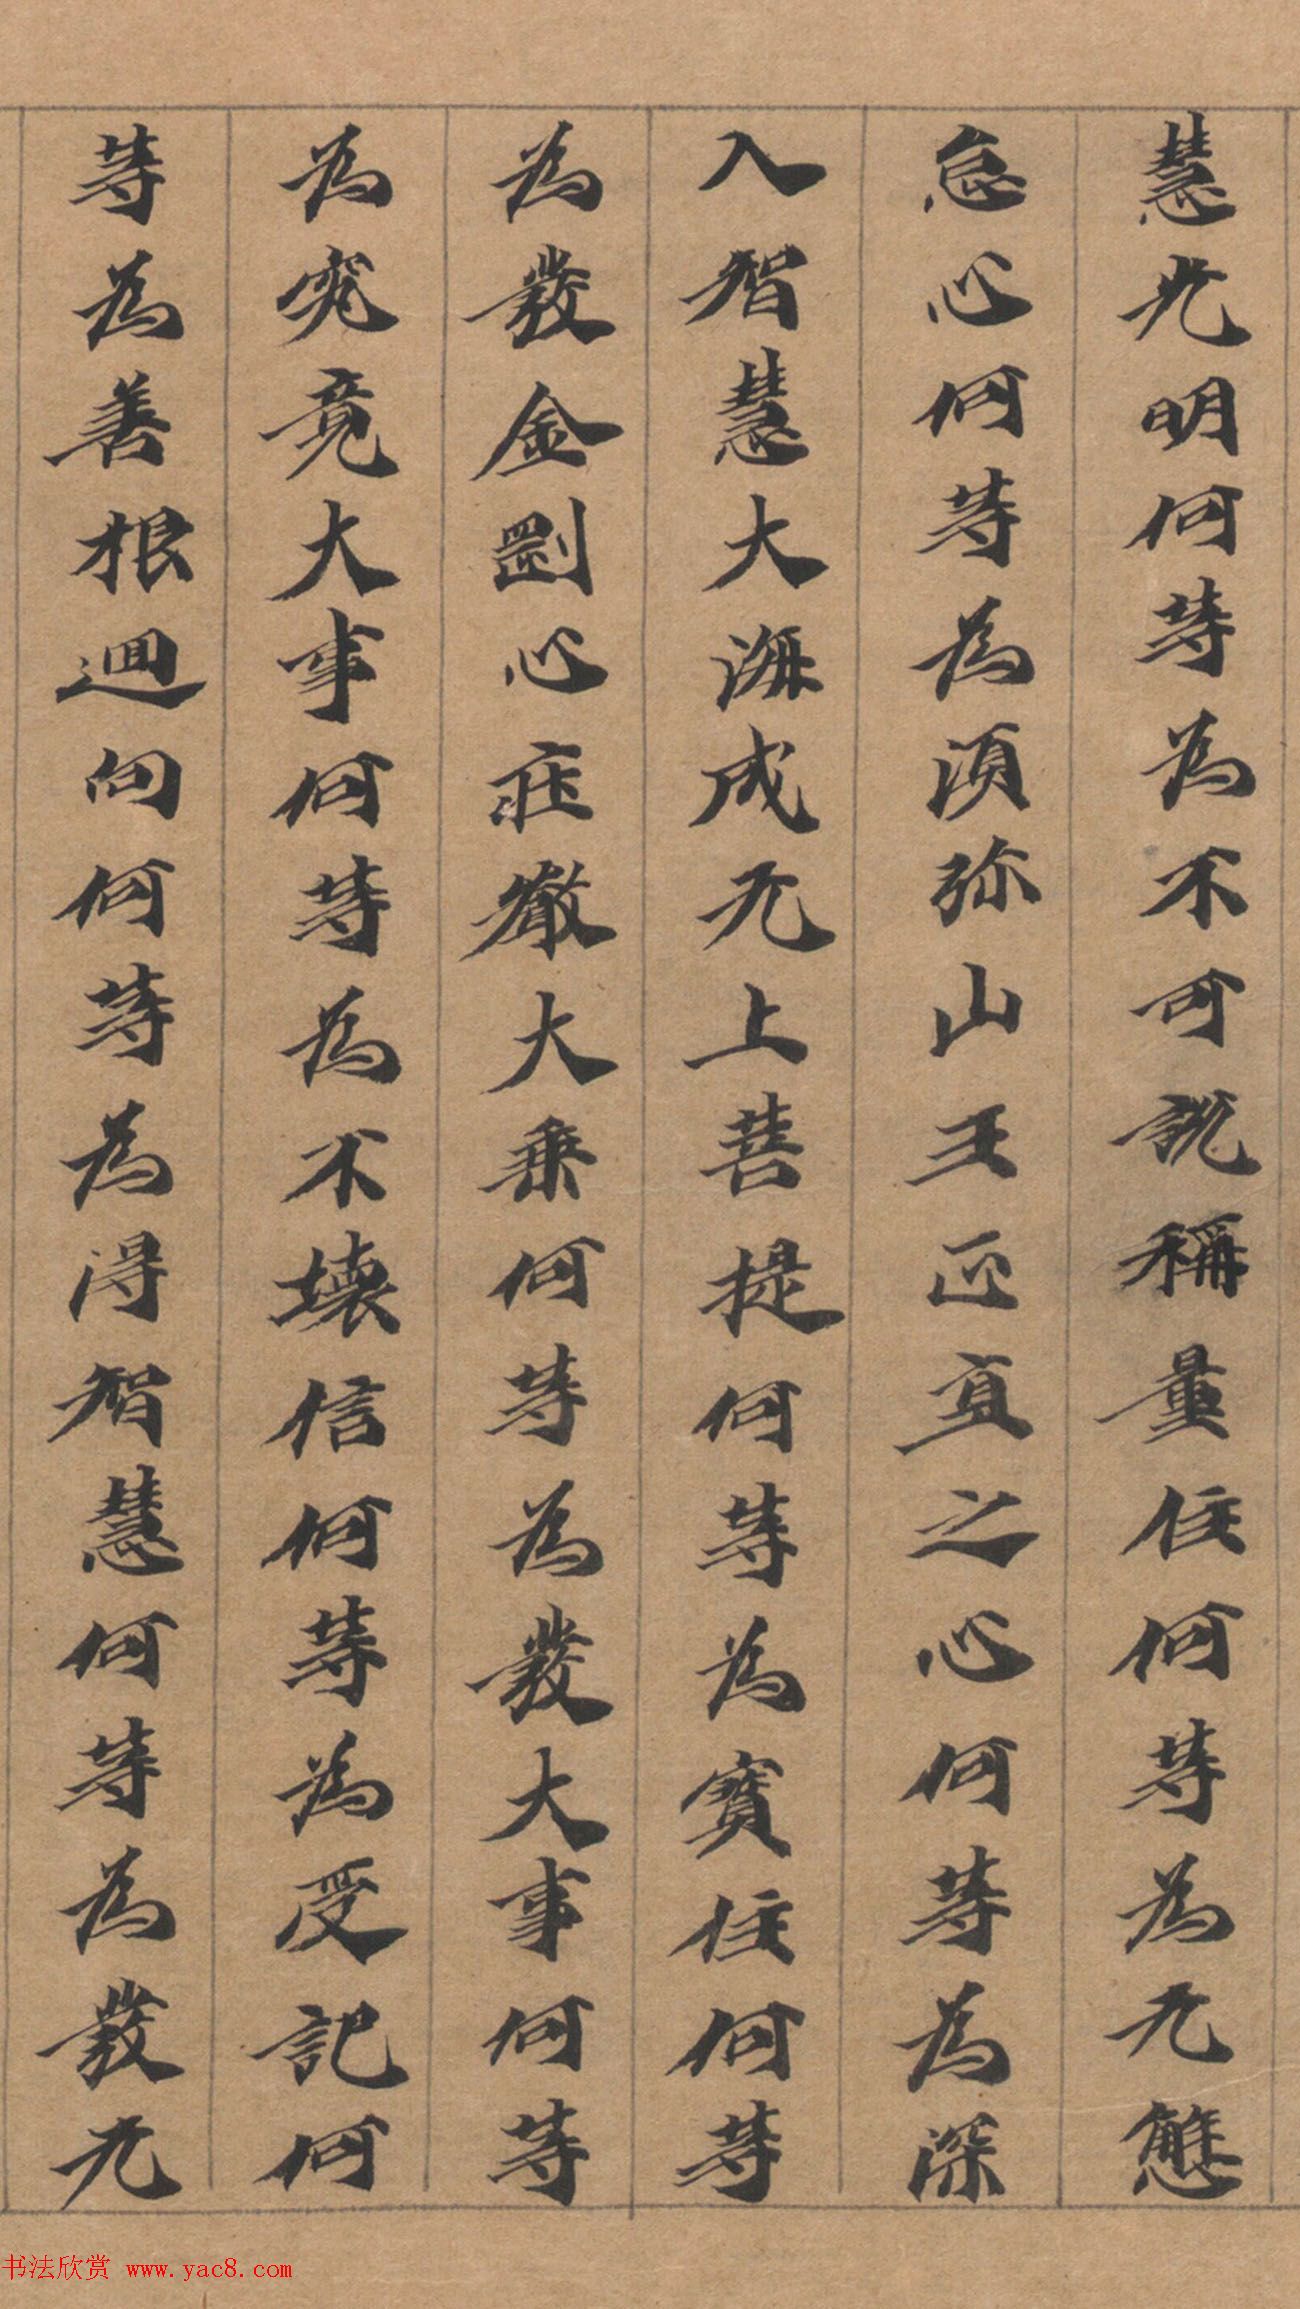 慧光明何等為不可說稱量住何等為无懈
怠心何等為須弥山王正直之心何等為深
入智慧大海成无上菩提何等為寳住何等
為發金剛心莊嚴大乗何等為發大事何等
為究竟大事何等為不壊信何等為受記何
等為善根迴向何等為得智慧何等為發无
书法欣赏 www.yac8.com